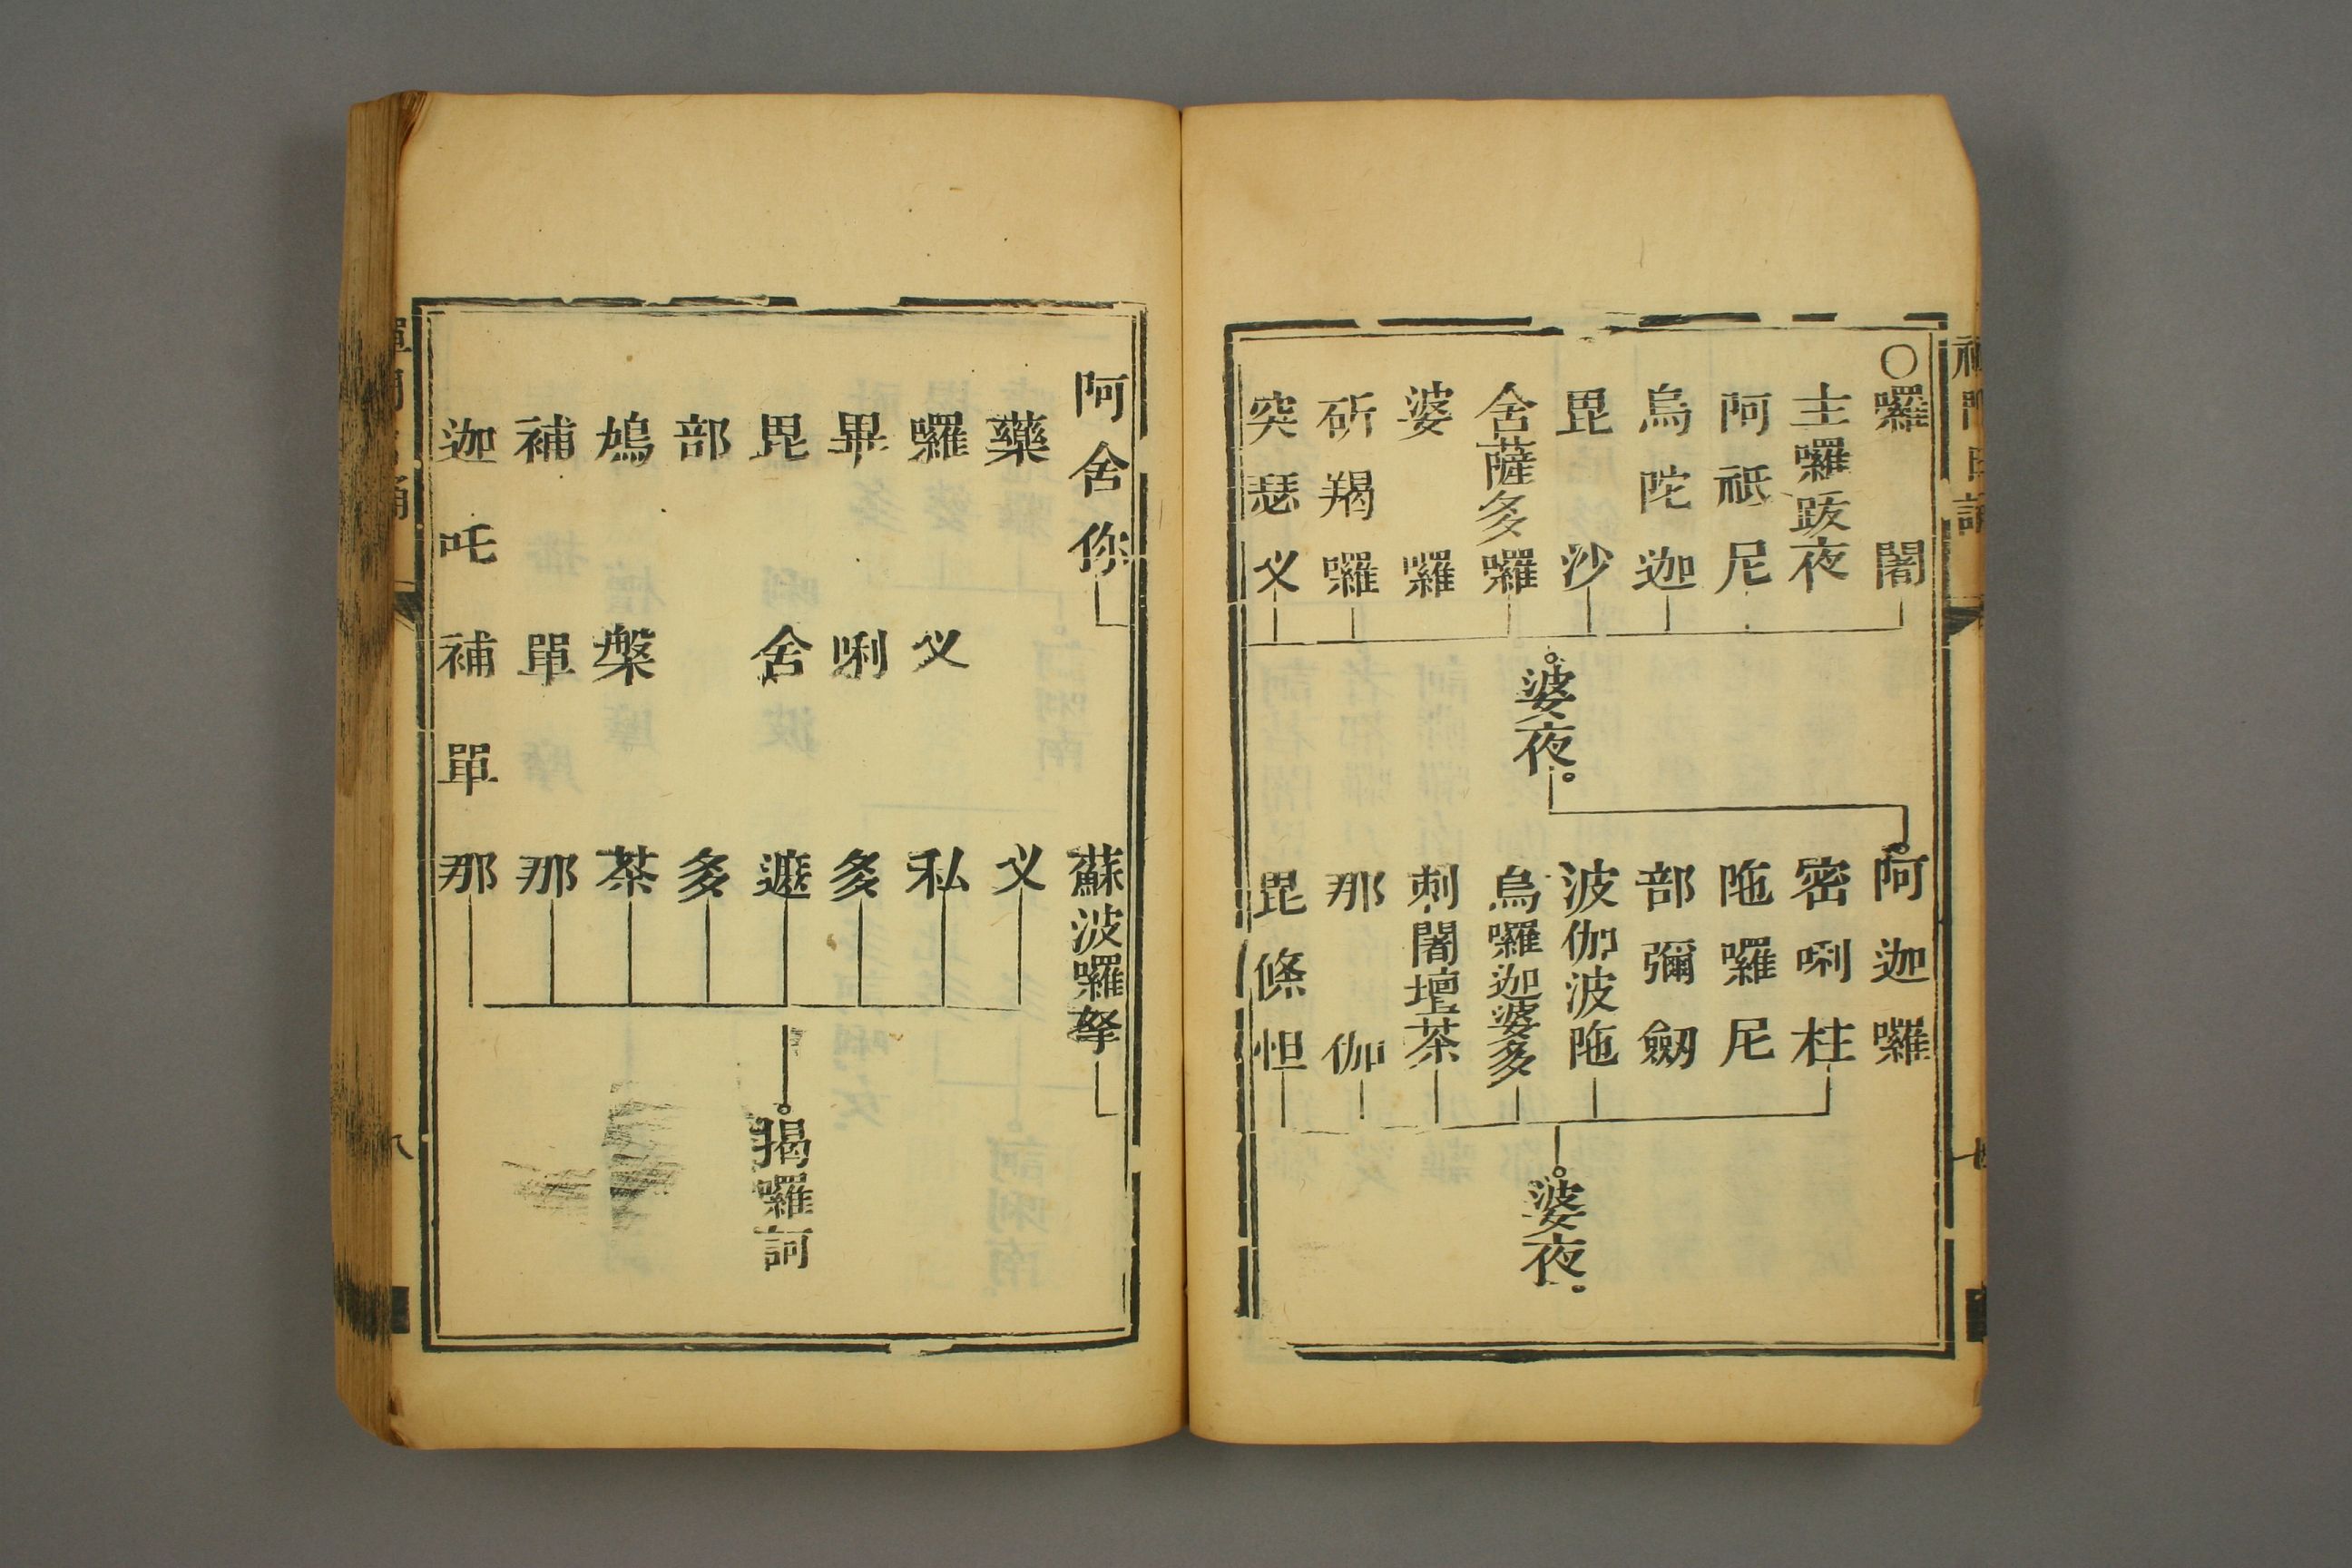 ○囉闍
主囉跋夜
阿祇尼
烏陀迦
毘沙
舍薩多囉
婆囉
斫羯囉
突瑟乂
婆夜
阿迦囉
密唎柱
陁囉尼
部彌劒
波伽波陁
烏囉迦婆多
剌闍壇茶
那伽
毘條怛
婆夜
阿舍你
蘇波囉拏
藥乂
囉乂私
畢唎多
毘舍遮
部多
鳩槃茶
補單那
迦吒補單那
揭囉訶
八